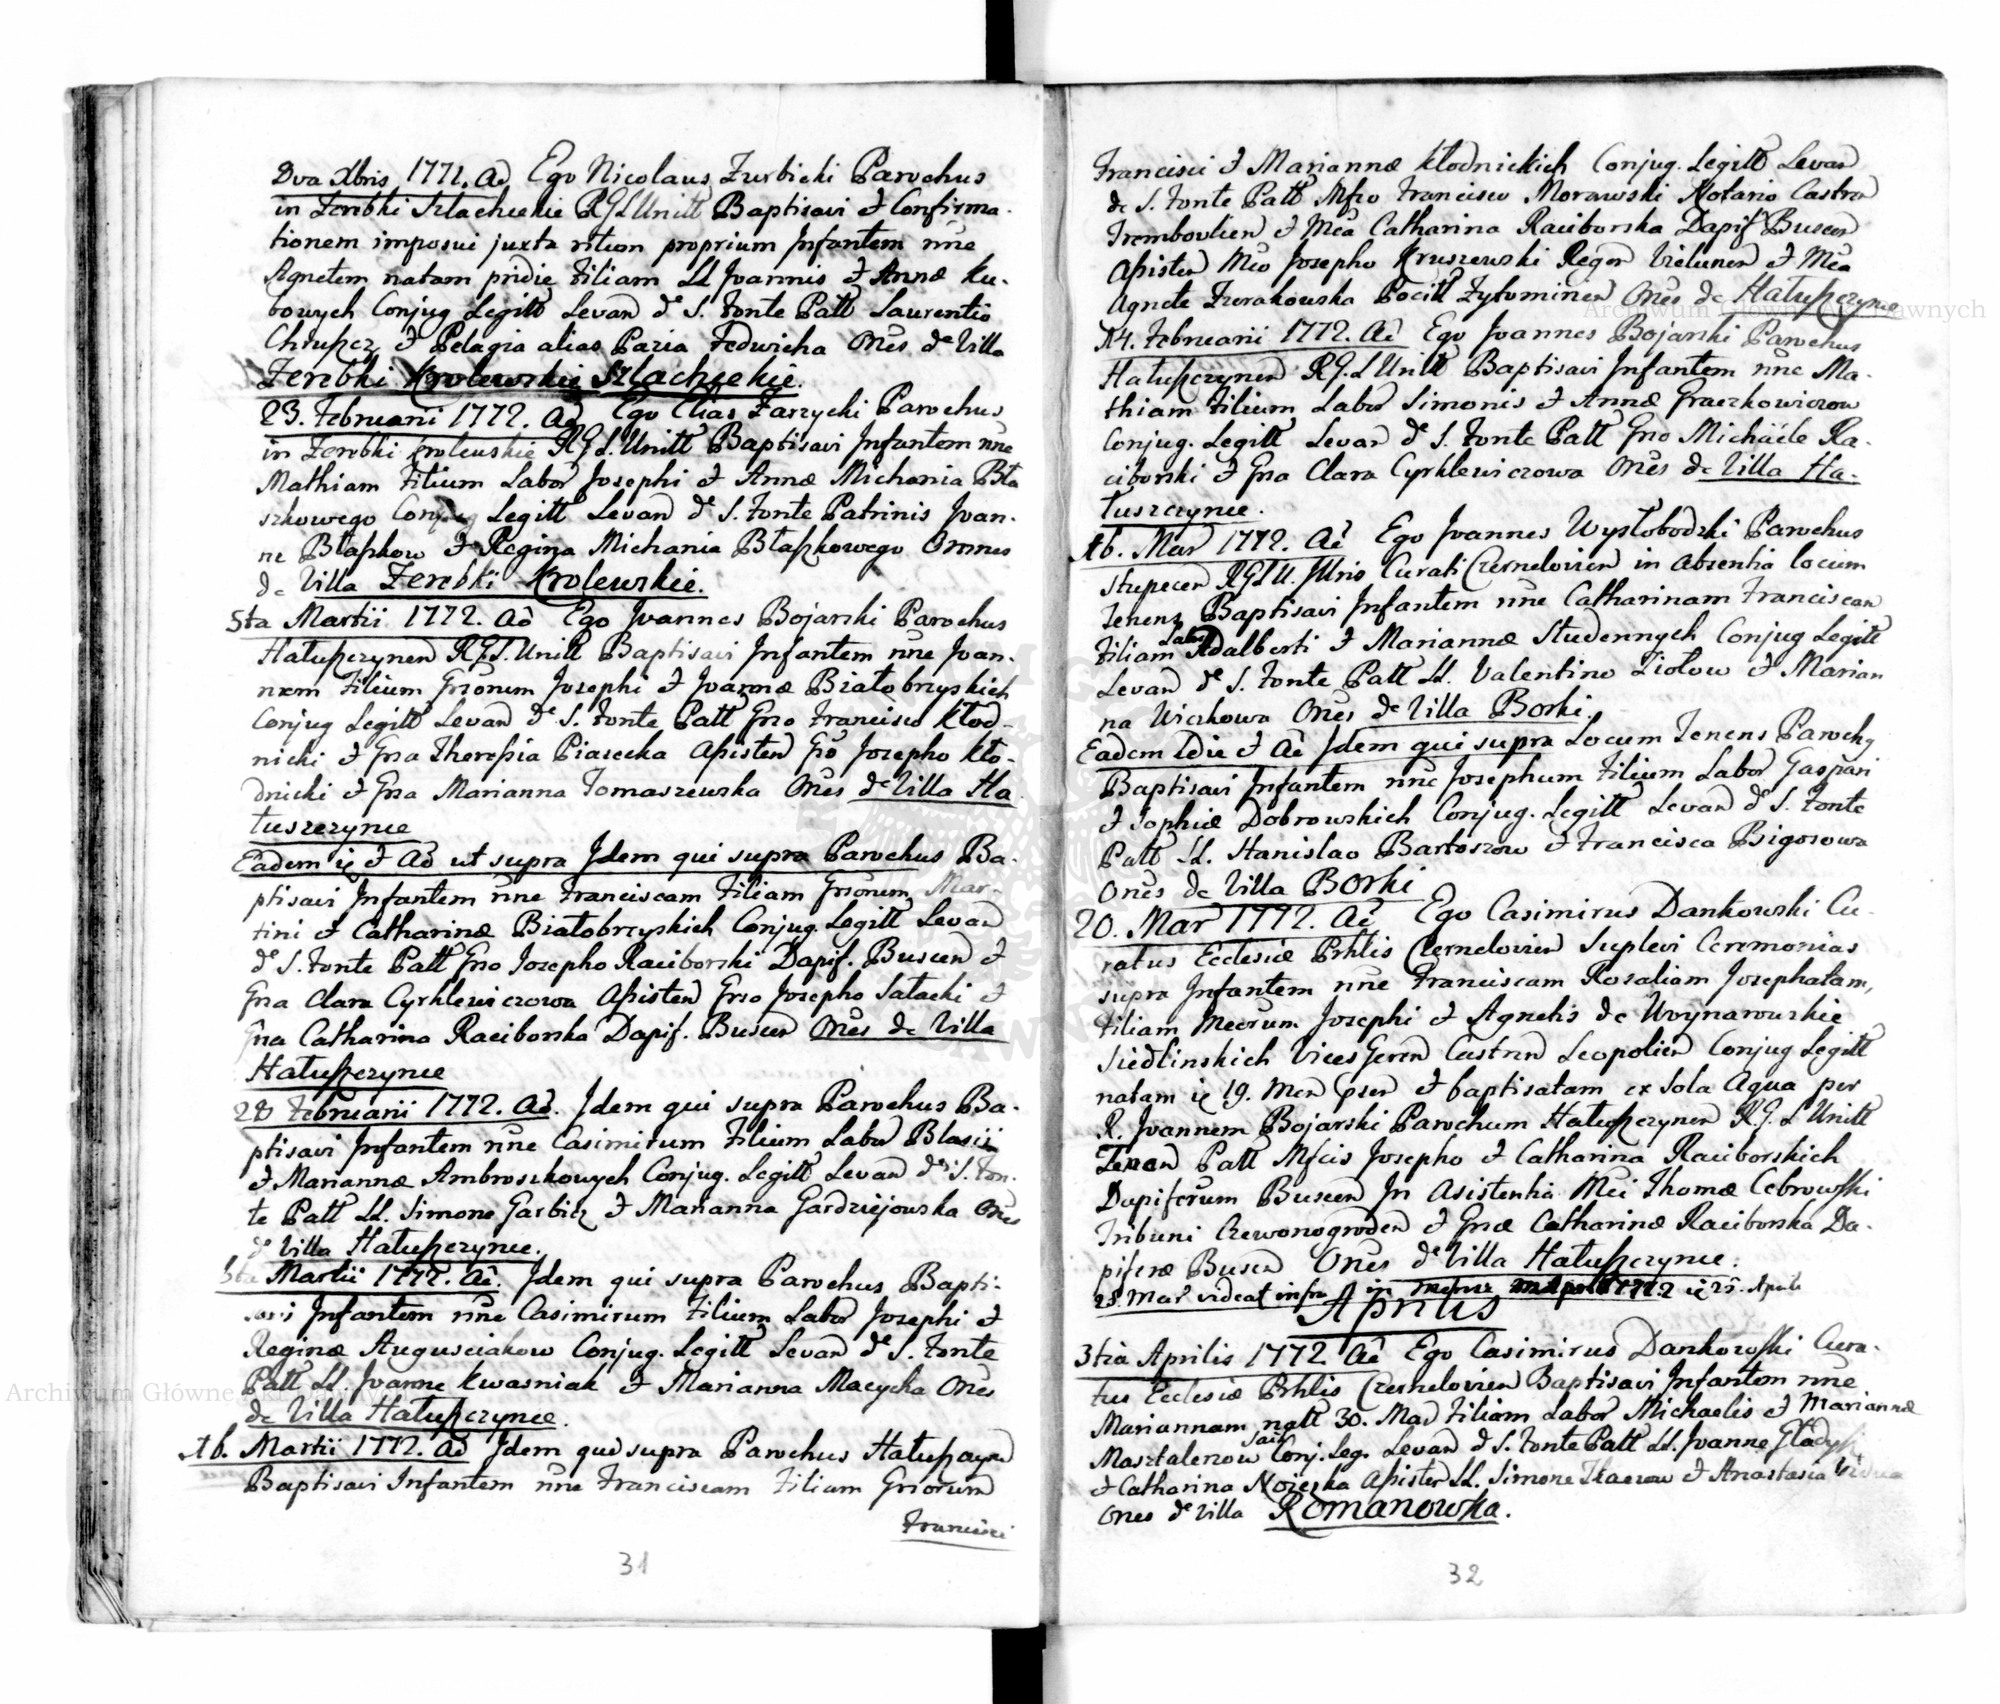 Dva Xbris 1771. Ao Ego Nicolaus Zurbicki Parochus
in Zerebki Szlacheckie RGLUnitt Baptisavi & Confirma-
tionem imposui juxta ritum proprium Infantem nne
Agnetem natam pridie Filiam LL Joannis & Annæ Ku-
bowych Conjug Legitt Levan de S. Fonte Patt Laurentio
& Pelagia alias Fedwicha Ones de Villa
Zerebki Krolewskie Szlacheckie.
23. Februarii 1772. Ao Ego Elias Zarzycki Parochus
in Zerebki Krolewskie RGL.Unitt Baptisavi Infantem nne
Mathiam Filium Labor Josephi & Annæ Michania Bła
szkowego Conjug Legitt Levan de S. Fonte Patrinis Joan-
ne Błaszkow & Regina Michania Błaszkowego Omnes
de Villa Zerebki Krolewskie.
5ta Martii 1772. Ao Ego Joannes Bojarski Parochus
Hałuszczynen RGL.Unitt Baptisavi Infantem nne Joan-
nem Filium Grsorum Josephi & Joannæ Białobrzyskich
Conjug Legitt Levan de S. Fonte Patt Grso Francisco Kłod-
nicki & Grsa Theressia Piasecka Assisten Gro Josepho Kło-
dnicki & Grsa Marianna Tomaszewska Ones de Villa Ha
łuszczynce
Eadem ie & Ao ut supra Idem qui supra Parochus Ba-
ptisavi Infantem nne Franciscam Filiam Grsorum Mar-
tini & Catharinæ Białobrzyskich Conjug. Legitt Levan
de S. Fonte Patt Grso Josepho Raciborski Dapif. Buscen &
Grsa Clara Cyrklewiczowa Assisten Grso Josepho Sałacki &
Grsa Catharina Raciborska Dapif. Buscen Ones de Villa
Hałuszczynce
28 Februarii 1772. Ao. Idem qui supra Parochus Ba-
ptisavi Infantem nne Casimirum Filium Labor Blasii
& Mariannæ Ambroszkowych Conjug. Legitt Levan de S. Fon-
te Patt LL. Simone Garbicz & Marianna Gardziejowska Ones
de Villa Hałuszczynce.
Martii 1772. Ao. Idem qui supra Parochus Bapti-
savi Infantem nne Casimirum Filium Labor Josephi &
Reginæ Augusciakow Conjug. Legitt Levan de S. Fonte
Patt LL Joanne Kwasniak & Marianna Macycha Ones
de Villa Hałuszczynce.
16. Martii 1772. Ao Idem qui supra Parochus
Baptisavi Infantem nne Franciscam Filiam Grsorum
Francisci
31
Francisci & Mariannæ Kłodnickich Conjug. Legitt Levan
de S. Fonte Patt Mfco Francisco Morawski Notario Castren
Trembovlien & Mca Catharina Raciborska Dapif Buscen
Assisten Mco Josepho Kruszewski Regen Vielunen & Mca
Agnete Zurakowska Pocill Zytominien Ones de Hałuszczynce
14. Februarii 1772. Ao Ego Joannes Bojarski Parochus
Hałuszczynen RG.LUnitt Baptisavi Infantem nne Ma-
thiam Filium Labor Simonis & Annæ Graczkowiczow
Conjug. Legitt Levan de S. Fonte Patt Grso Michaële Ra-
ciborski & Grsa Clara Cyrklewiczowa Ones de Villa Ha-
łuszczynce.
16. Mar 1772. Ao Ego Joannes Wysłobodzki Parochus
Stupecen RGLU. Curati Czernelovien in absentia locum
Tenens Baptisavi Infantem nne Catharinam Franciscam
Filiam Labor Adalberti & Mariannæ Studennych Conjug Legitt
Levan de S. Fonte Patt LL. Valentino Ziołow & Marian
na Wiczkowa Ones de Villa Borki.
Eadem Die & Ao Idem qui supra Locum Tenens Parochy
Baptisavi Infantem nne Josephum Filium Labor Gaspari
& Sophiæ Dobrowskich Conjug. Legitt Levan de S. Fonte
Patt LL. Stanislao Bartoszow & Francisca Bigosowa
Ones de Villa Borki
20. Mar 1772. Ao Ego Casimirus Dankowski Cu-
ratus Ecclesiæ Prhlis Czernelovien Suplevi Ceremonias
supra Infantem nne Franciscam Rosaliam Josephatam,
Filiam Mcorum Josephi & Agnetis de Woynarowskie
Siedlinskich Vices Geren Castren Leopolien Conjug Legitt
natam ie 19. Men psen & baptisatam ex Sola Aqua per
R. Joannem Bojarski Parochum Hałuszczynen R.G.L Unitt
Tenen Patt Mfcis Josepho & Catharina Raciborskich
Dapiferum Buscen In Asistentia Mci Thomæ Cebrowski
Tribuni Czerwonogroden & Grsæ Catharinæ Raciborska Da-
piferæ Buscen Ones de Villa Hałuszczynce.
25. Mar videat infra in 1772 ie 25. Aprili
Aprilis
3tia Aprilis 1772 Ao Ego Casimirus Dankowski Cura-
tus Ecclesiæ Prhlis Czernelovien Baptisavi Infantem nne
Mariannam natt 30. Mar Filiam Labor Michaelis & Mariannæ
Masztalerzow Conj. Leg. Levan d S. Fonte Patt LL. Joanne Gładysz
& Catharina Assisten LL. Simone Tkaczow & Anastasia
Ones de Villa Romanowka.
32
Archiwum Główne Akt Dawnych
Archiwum Główne Akt Dawnych